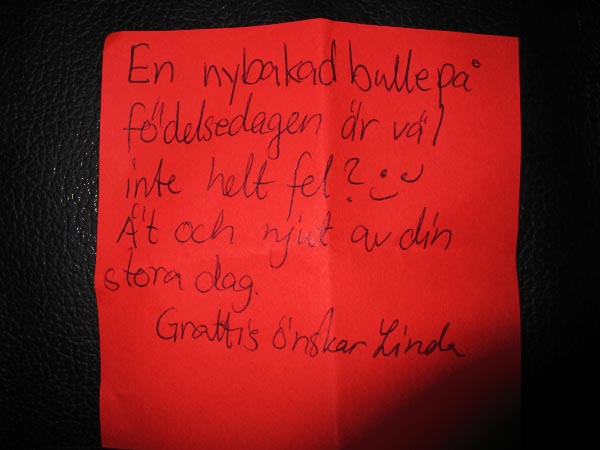 En nybakad bulle på
födelsedagen är väl
inte helt fel? :)
Ät och njut av din
stora dag.
Grattis önskar Linda